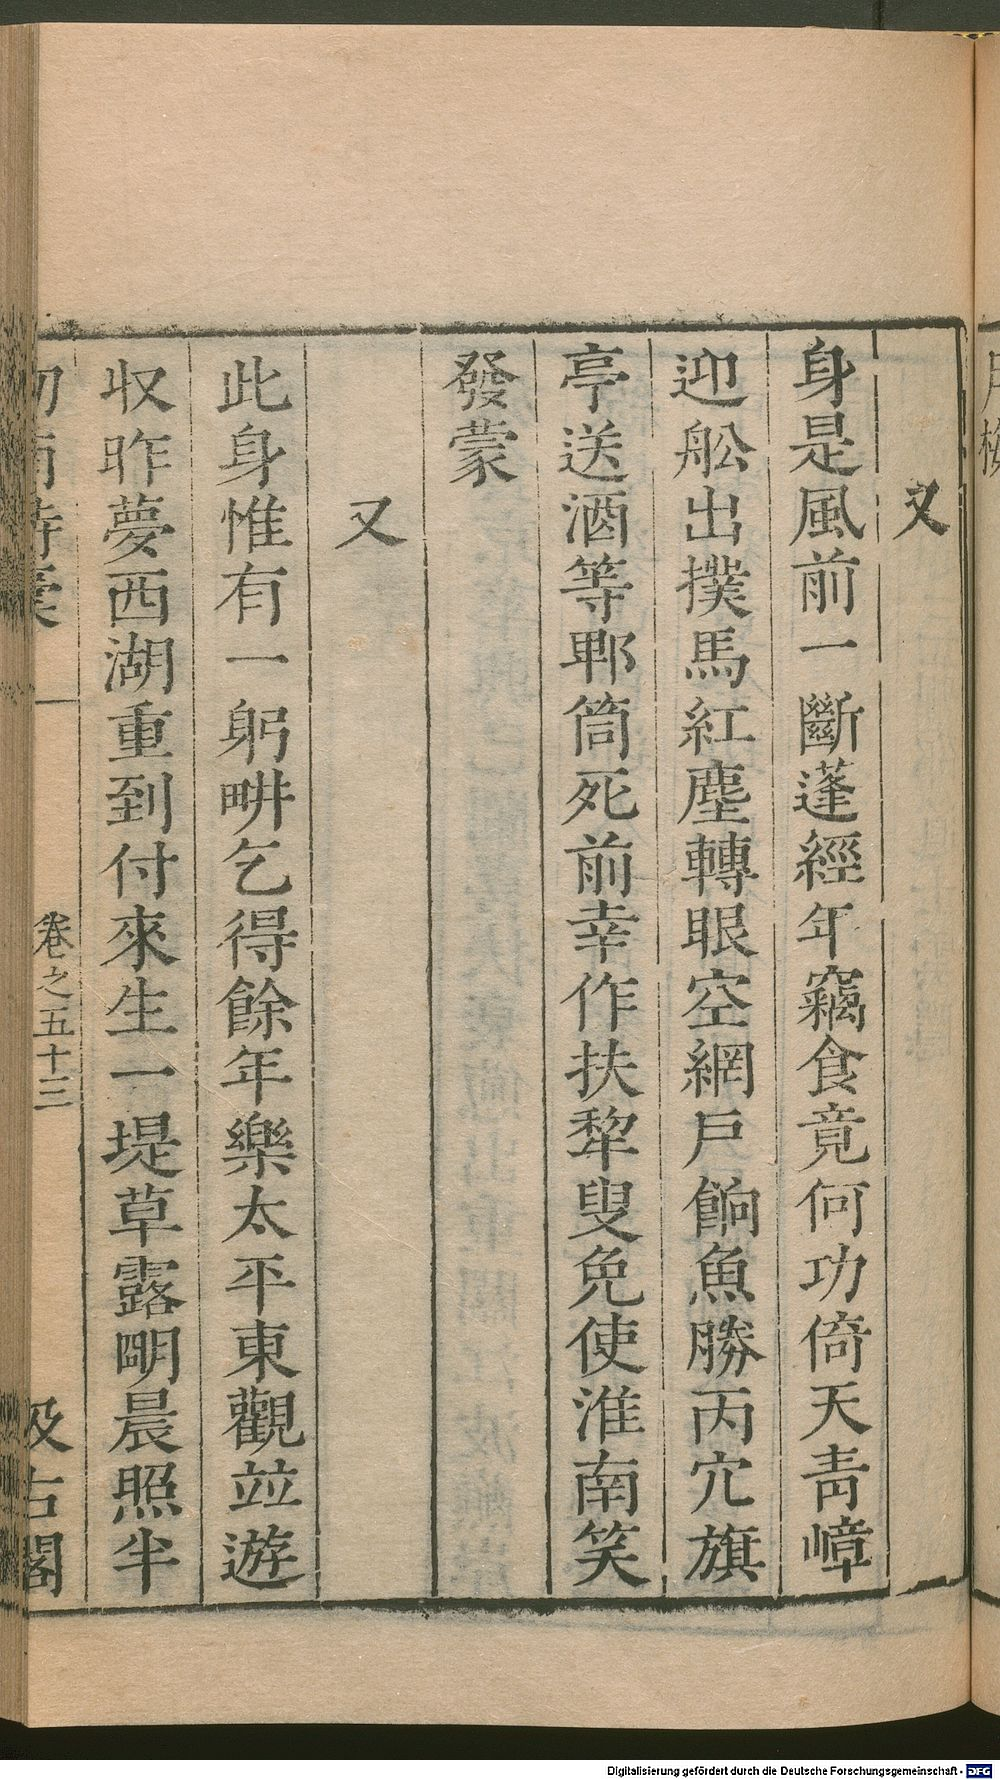 又
身是風前一斷蓬經年竊食竟何功倚天青嶂
迎舩出撲馬紅塵轉眼空網戶餉魚勝丙穴旗
亭送酒等郫筒死前幸作扶犂叟免使淮南笑
發蒙
又
此身惟有一躬畊乞得餘年樂太平東觀竝遊
収昨夢西湖重到付來生一堤草露明晨照半
卷之五十三
汲古閣
Digitalisierung gefördert durch die Deutsche Forschungsgemeinschaft - DFG